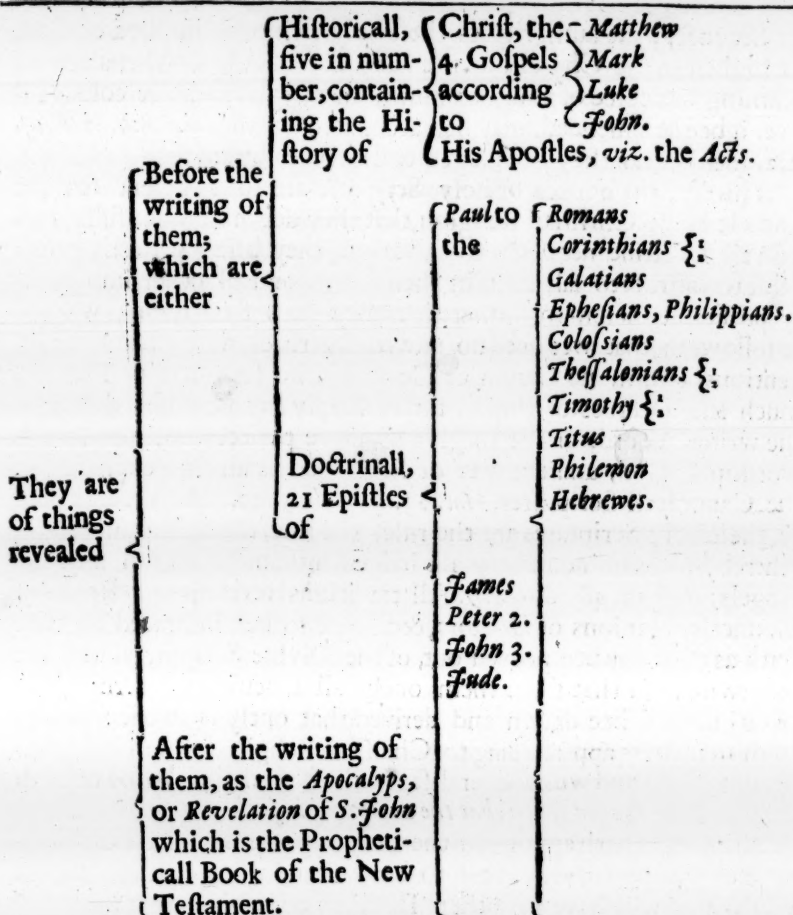 They are
of things
revealed
Before the
writing of
them;
which are
either
Hiſtoricall,
five in num-
ber, contain-
ing the Hi-
ſtory of
Chriſt, the
4 Goſpels
according
to
Matthew
Mark
Luke
John.
His Apoſtles, viz. the Acts.
Doctrinall,
21 Epiſtles
of
Paul to
the
Romans
Corinthians {:
Galatians
Epheſians, Philippians.
Coloſsians
Theſſalonians {:
Timothy {:
Titus
Philemon
Hebrewes.
James
Peter 2.
John 3.
Jude.
After the writing of
them, as the Apocalyps,
or Revelation of S. John
which is the Propheti-
call Book of the New
Teſtament.